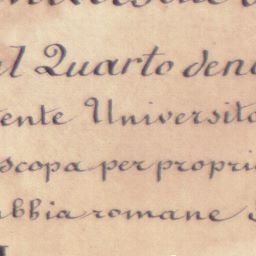 el Quarto den
ente Universit
scopa per propri
ubbia romane